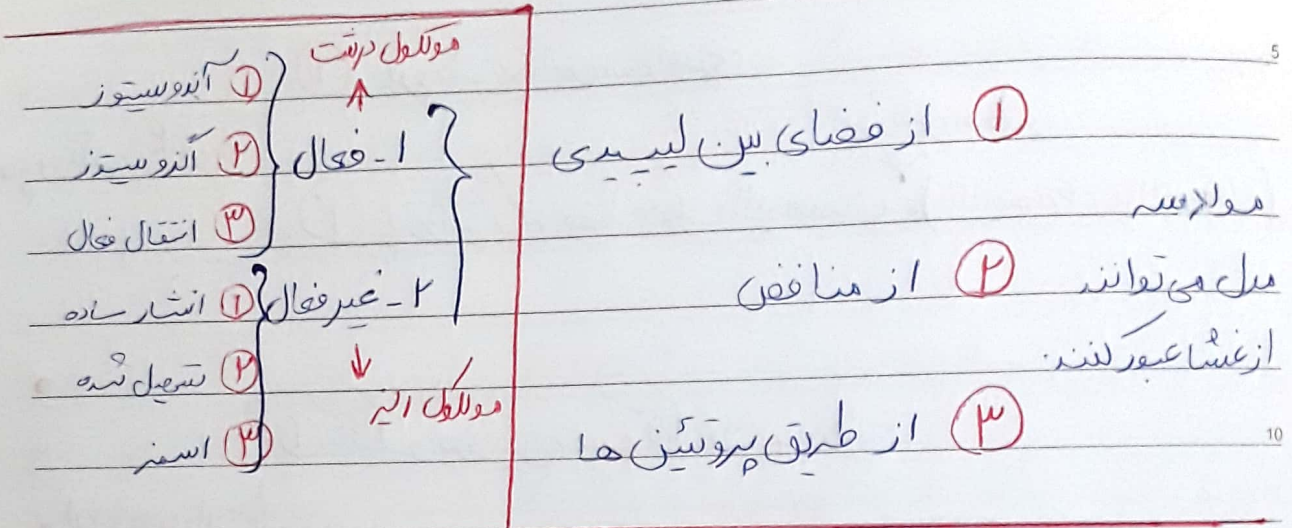 5
۱ از فضای بین لیپیدی
مدل می توانند
از غشا عبور کنند.
۲ از منافض
۳ از طریق پروتئین ها
10
مولکول درشت
۱ - فعال
۱ آندوسیتوز
۲ اگزوسیتوز
۳ انتقال فعال
۲ - غیر فعال
۱ انتشار ساده
۲ تسهیل شده
۳ اسمز
مولکول